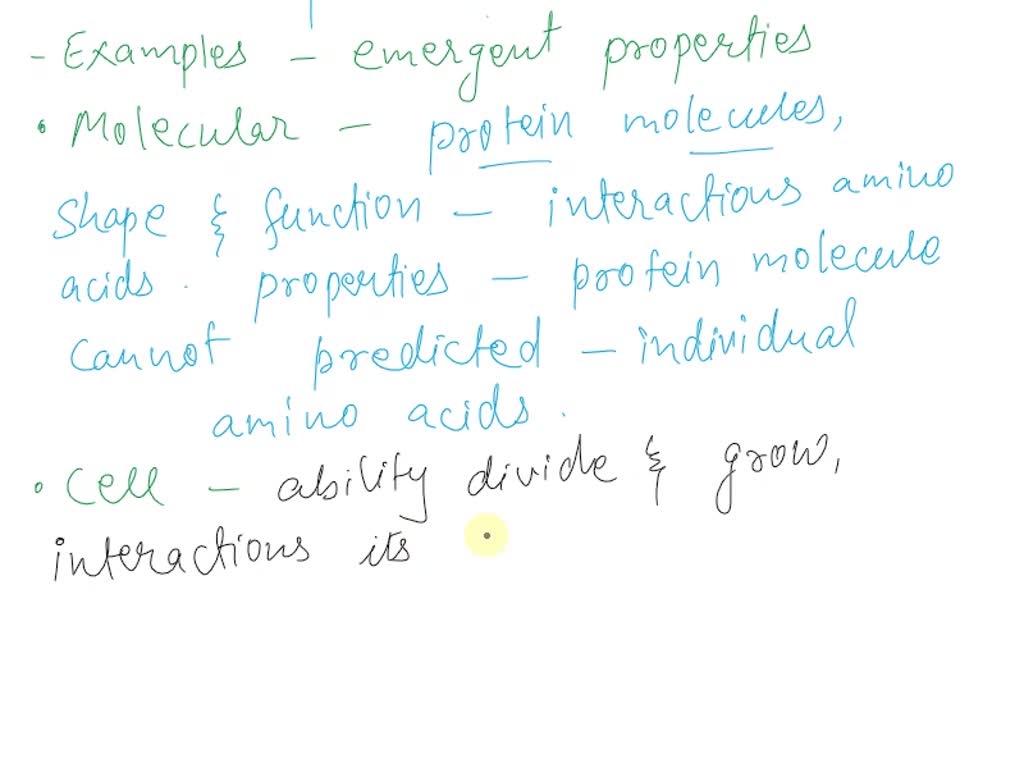 - Examples - emergent properties
• Molecular - protein molecules,
Shape & function - interactions amino
acids. properties - protein molecule
cannot predicted - individual
amino acids.
• Cell - ability divide & grow,
interactions its